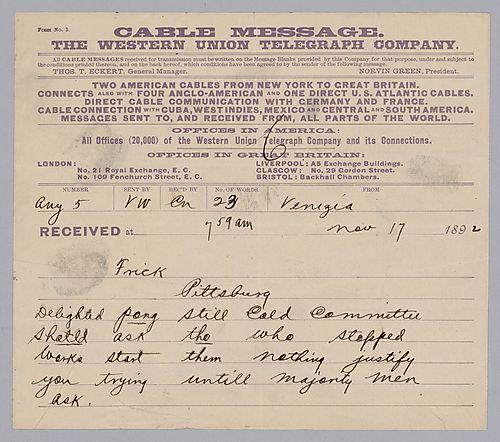 FORM NO. 3.
CABLE MESSAGE.
THE WESTERN UNION TELEGRAPH COMPANY.
All CABLE MESSAGES received for transmission must be written on the Message Blanks provided by this Company for that purpose, under and subject to
the conditions printed thereon, and on the back hereof, which conditions have been agreed to by the sender of the following message.
THOS. T. ECKERT, General Manager. NORVIN GREEN, President.
TWO AMERICAN CABLES FROM NEW YORK TO GREAT BRITAIN.
CONNECTS ALSO WITH FOUR ANGLO-AMERICAN AND ONE DIRECT U.S. ATLANTIC CABLES.
DIRECT CABLE COMMUNICATION WITH GERMANY AND FRANCE.
CABLE CONNECTION WITH CUBA, WEST INDIES, MEXICO AND CENTRAL AND SOUTH AMERICA.
MESSAGES SENT TO, AND RECEIVED FROM, ALL PARTS OF THE WORLD.
OFFICES IN AMERICA:
All Offices (20,000) of the Western Union Telegraph Company and its Connections.
OFFICES IN GREAT BRITAIN:
LONDON: LIVERPOOL: A5 Exchange Buildings.
No. 21 Royal Exchange, E. C. GLASGOW: No. 29 Gordon Street.
No. 109 Fenchurch Street, E. C. BRISTOL: Backhall Chambers.
NUMBER SENT BY REC'D BY No. OF WORDS. FROM
Any 5 VW Cn 23 Venezia
RECEIVED at 7 59 am Nov 17 1892
Frick
Pittsburg
Delighted pong still Cald Committee
Should ask tho who stopped
works start them nothing justify
you trying untill majorty men
ask.